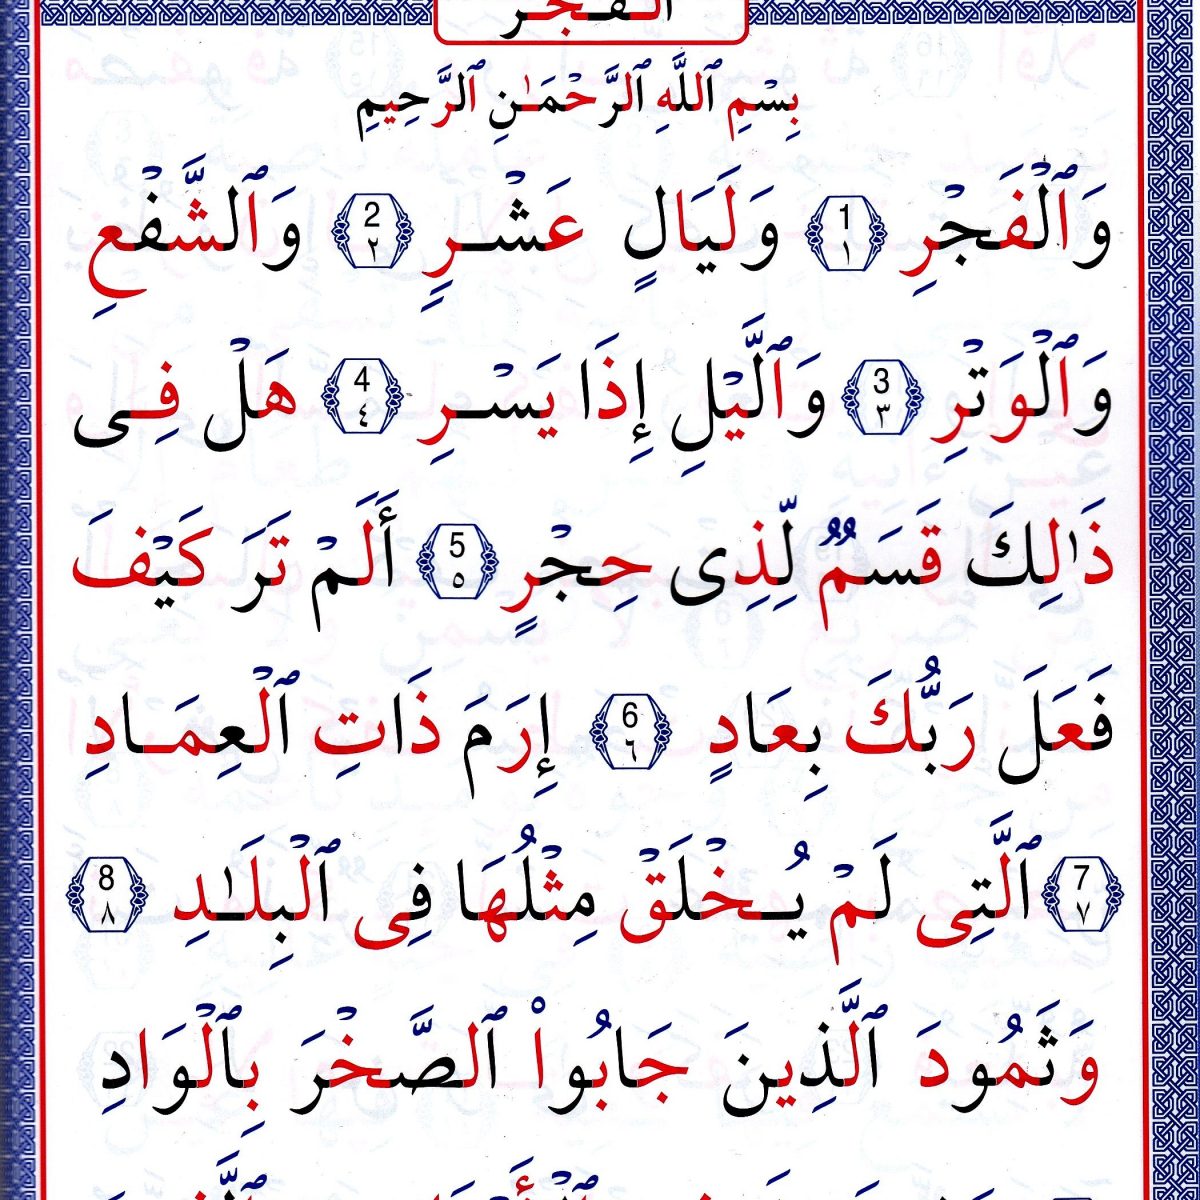 الفجر
بِسْمِ ٱللَّهِ ٱلرَّحْمَـٰنِ ٱلرَّحِيمِ
وَٱلْفَجْرِ 1 ١ وَلَيَالٍ عَشْـرٍ 2 ٢ وَٱلشَّفْعِ
وَٱلْوَتْرِ 3 ٣ وَٱلَّيْلِ إِذَا يَسْـرِ 4 ٤ هَلْ فِـى
ذَٰلِكَ قَسَمٌ لِّذِى حِجْرٍ 5 ٥ أَلَمْ تَرَ كَيْفَ
فَعَلَ رَبُّكَ بِعَادٍ 6 ٦ إِرَمَ ذَاتِ ٱلْعِمَـادِ
7 ٧ ٱلَّتِى لَمْ يُـخْلَقْ مِثْلُهَا فِى ٱلْبِلَـٰدِ 8 ٨
وَثَمُودَ ٱلَّذِينَ جَابُوا۟ ٱلصَّخْرَ بِٱلْوَادِ